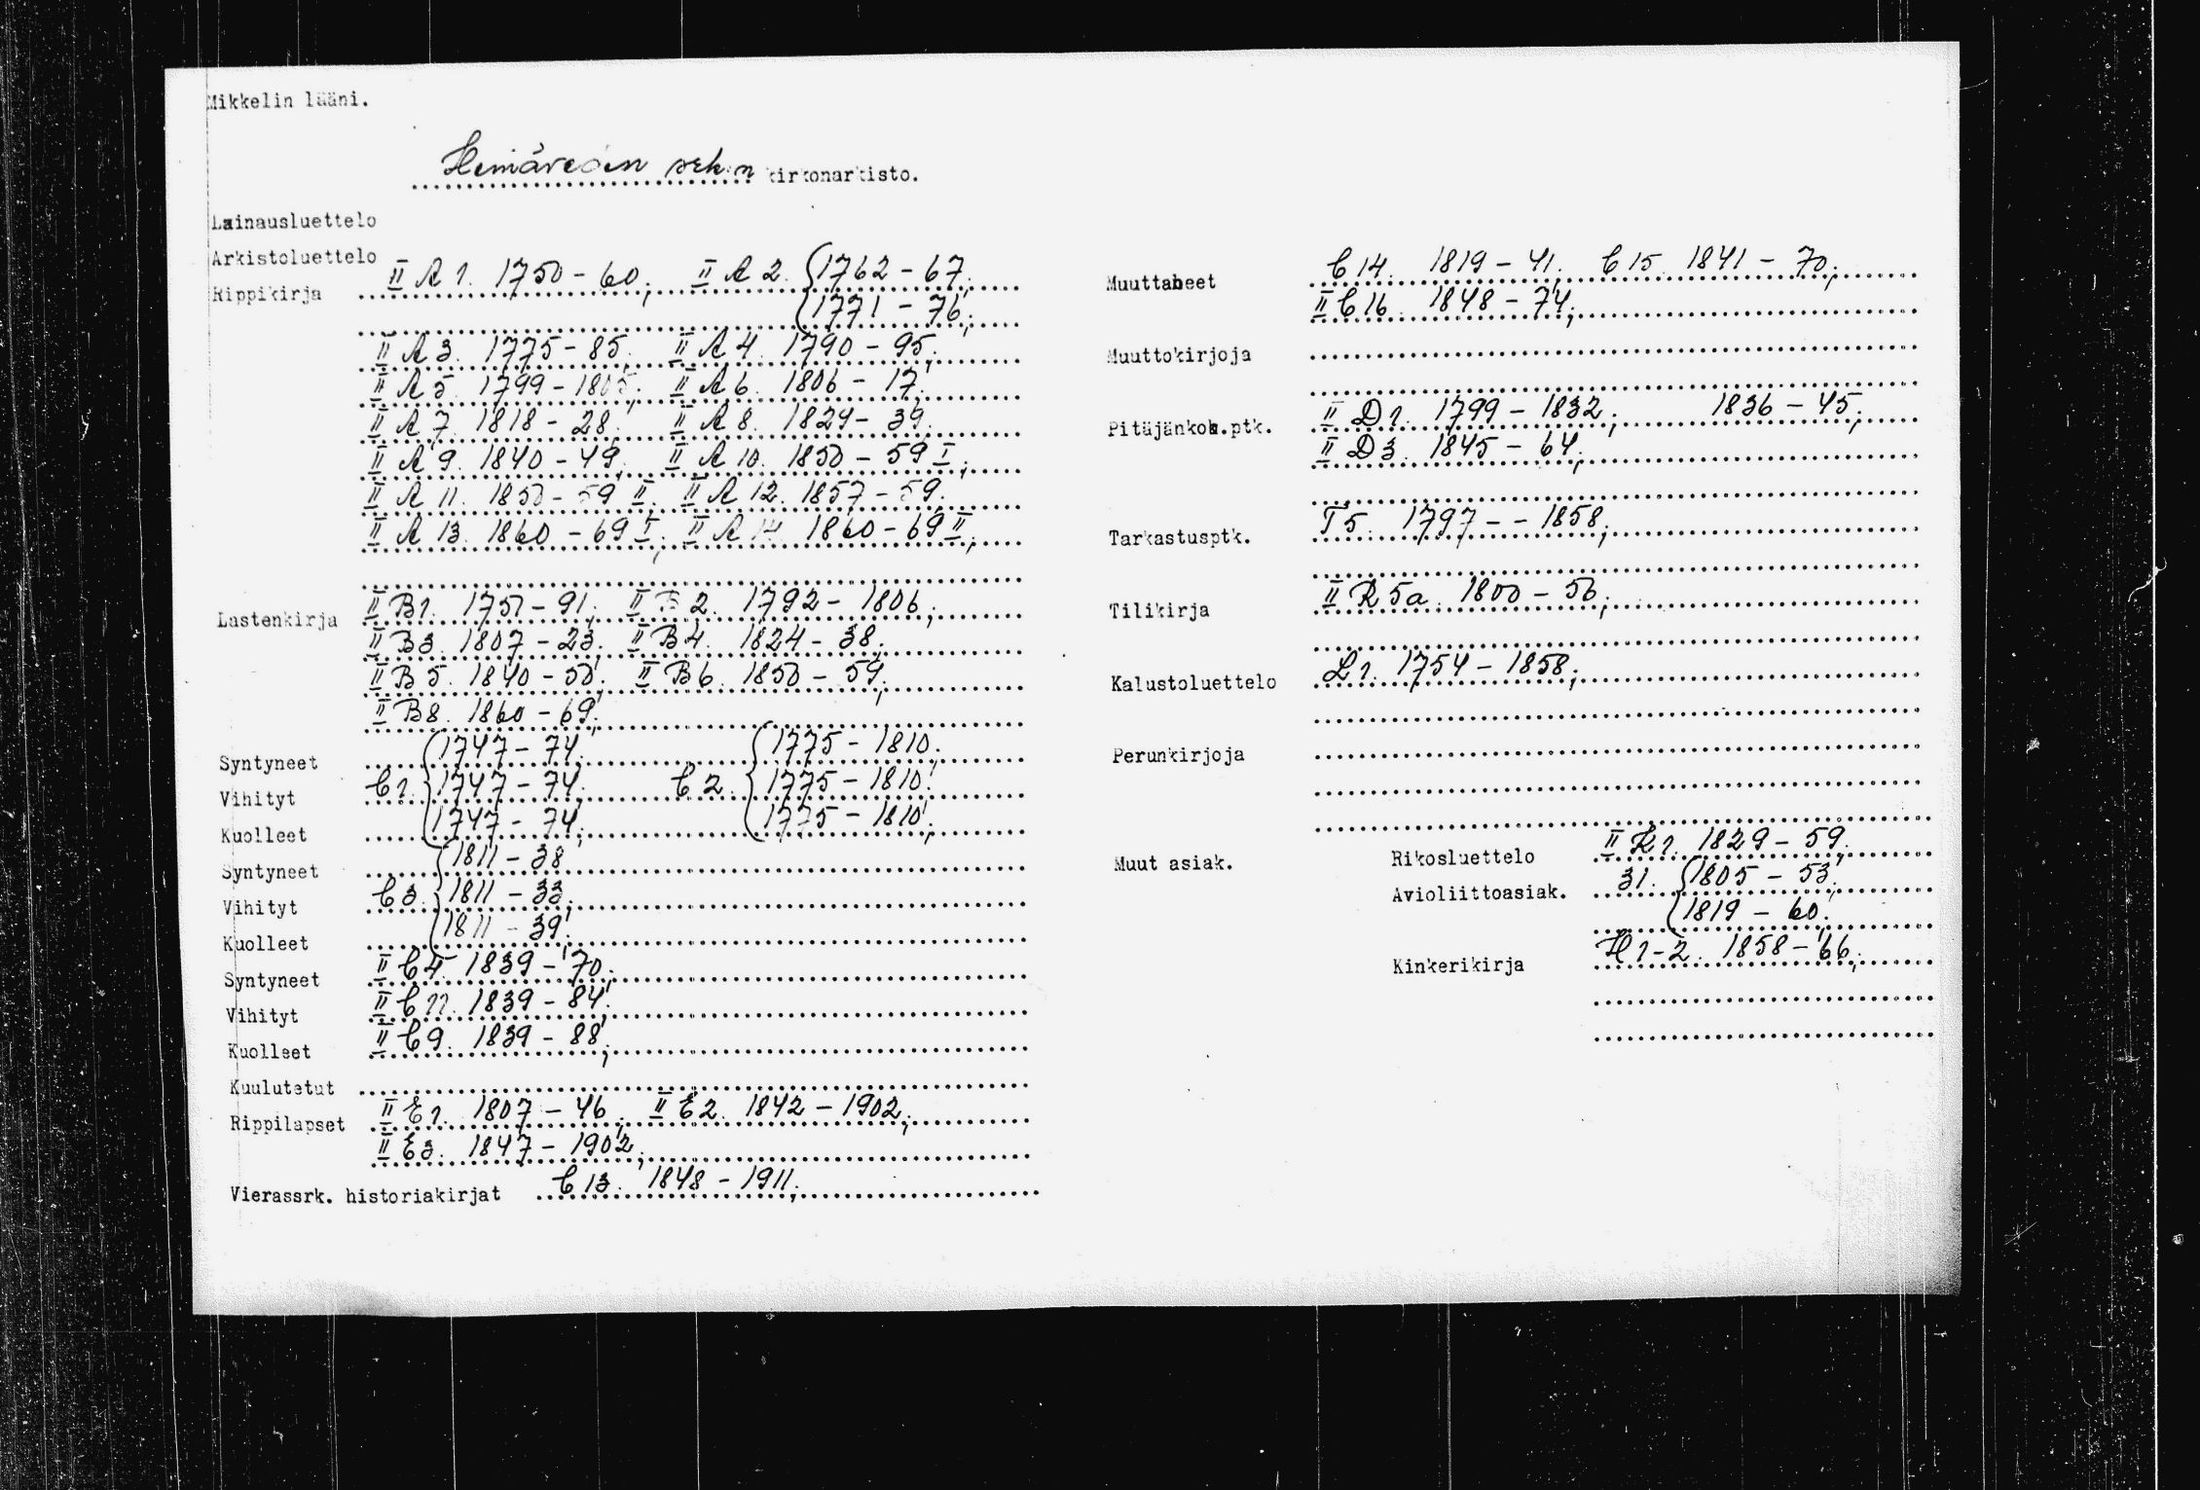 Mikkelin lääni.
Heinäveden srk:n kirkonarkisto.
Lainausluettelo
Arkistoluettelo
Rippikirja II A 1. 1750 - 60; II A 2. 1762 - 67;
1771 - 76;
II A 3. 1775 - 85. II A 4. 1790 - 95;
II A 5. 1799 - 1805; II A 6. 1806 - 17;
II A 7. 1818 - 28. II A 8. 1829 - 39.
II A 9. 1840 - 49; II A 10. 1850 - 59 I;
II A 11. 1850 - 59 II; II A 12. 1857 - 59.
II A 13. 1860 - 69 I; II A 14. 1860 - 69 II;
Lastenkirja II B 1. 1751 - 91; II B 2. 1792 - 1806;
II B 3. 1807 - 23; II B 4. 1824 - 38;
II B 5. 1840 - 50; II B 6. 1850 - 59;
II B 8. 1860 - 69;
Syntyneet 1747 - 74; 1775 - 1810;
Vihityt C 1. 1747 - 74; C 2. 1775 - 1810;
Kuolleet 1747 - 74; 1775 - 1810;
Syntyneet 1811 - 38
Vihityt C 3. 1811 - 33;
Kuolleet 1811 - 39;
Syntyneet II C 4. 1839 - 70;
Vihityt II C 11. 1839 - 84;
Kuolleet II C 9. 1839 - 88;
Kuulutetut
Rippilapset II E 1. 1807 - 46; II E 2. 1842 - 1902;
II E 3. 1847 - 1902;
Vierassrk. historiakirjat C 13. 1848 - 1911;
Muuttaneet C 14. 1819 - 41; C 15. 1841 - 70;
II C 16. 1848 - 74;
Muuttokirjoja
Pitäjänkok.ptk. II D 1. 1799 - 1832; 1836 - 45;
II D 3. 1845 - 64;
Tarkastusptk. T 5. 1797 - - 1858;
Tilikirja II R 5a. 1800 - 56;
Kalustoluettelo L 1. 1754 - 1858;
Perunkirjoja
Muut asiak. Rikosluettelo II K 1. 1829 - 59.
Avioliittoasiak. 31. 1805 - 53;
1819 - 60;
Kinkerikirja H 1-2. 1858 - 66;